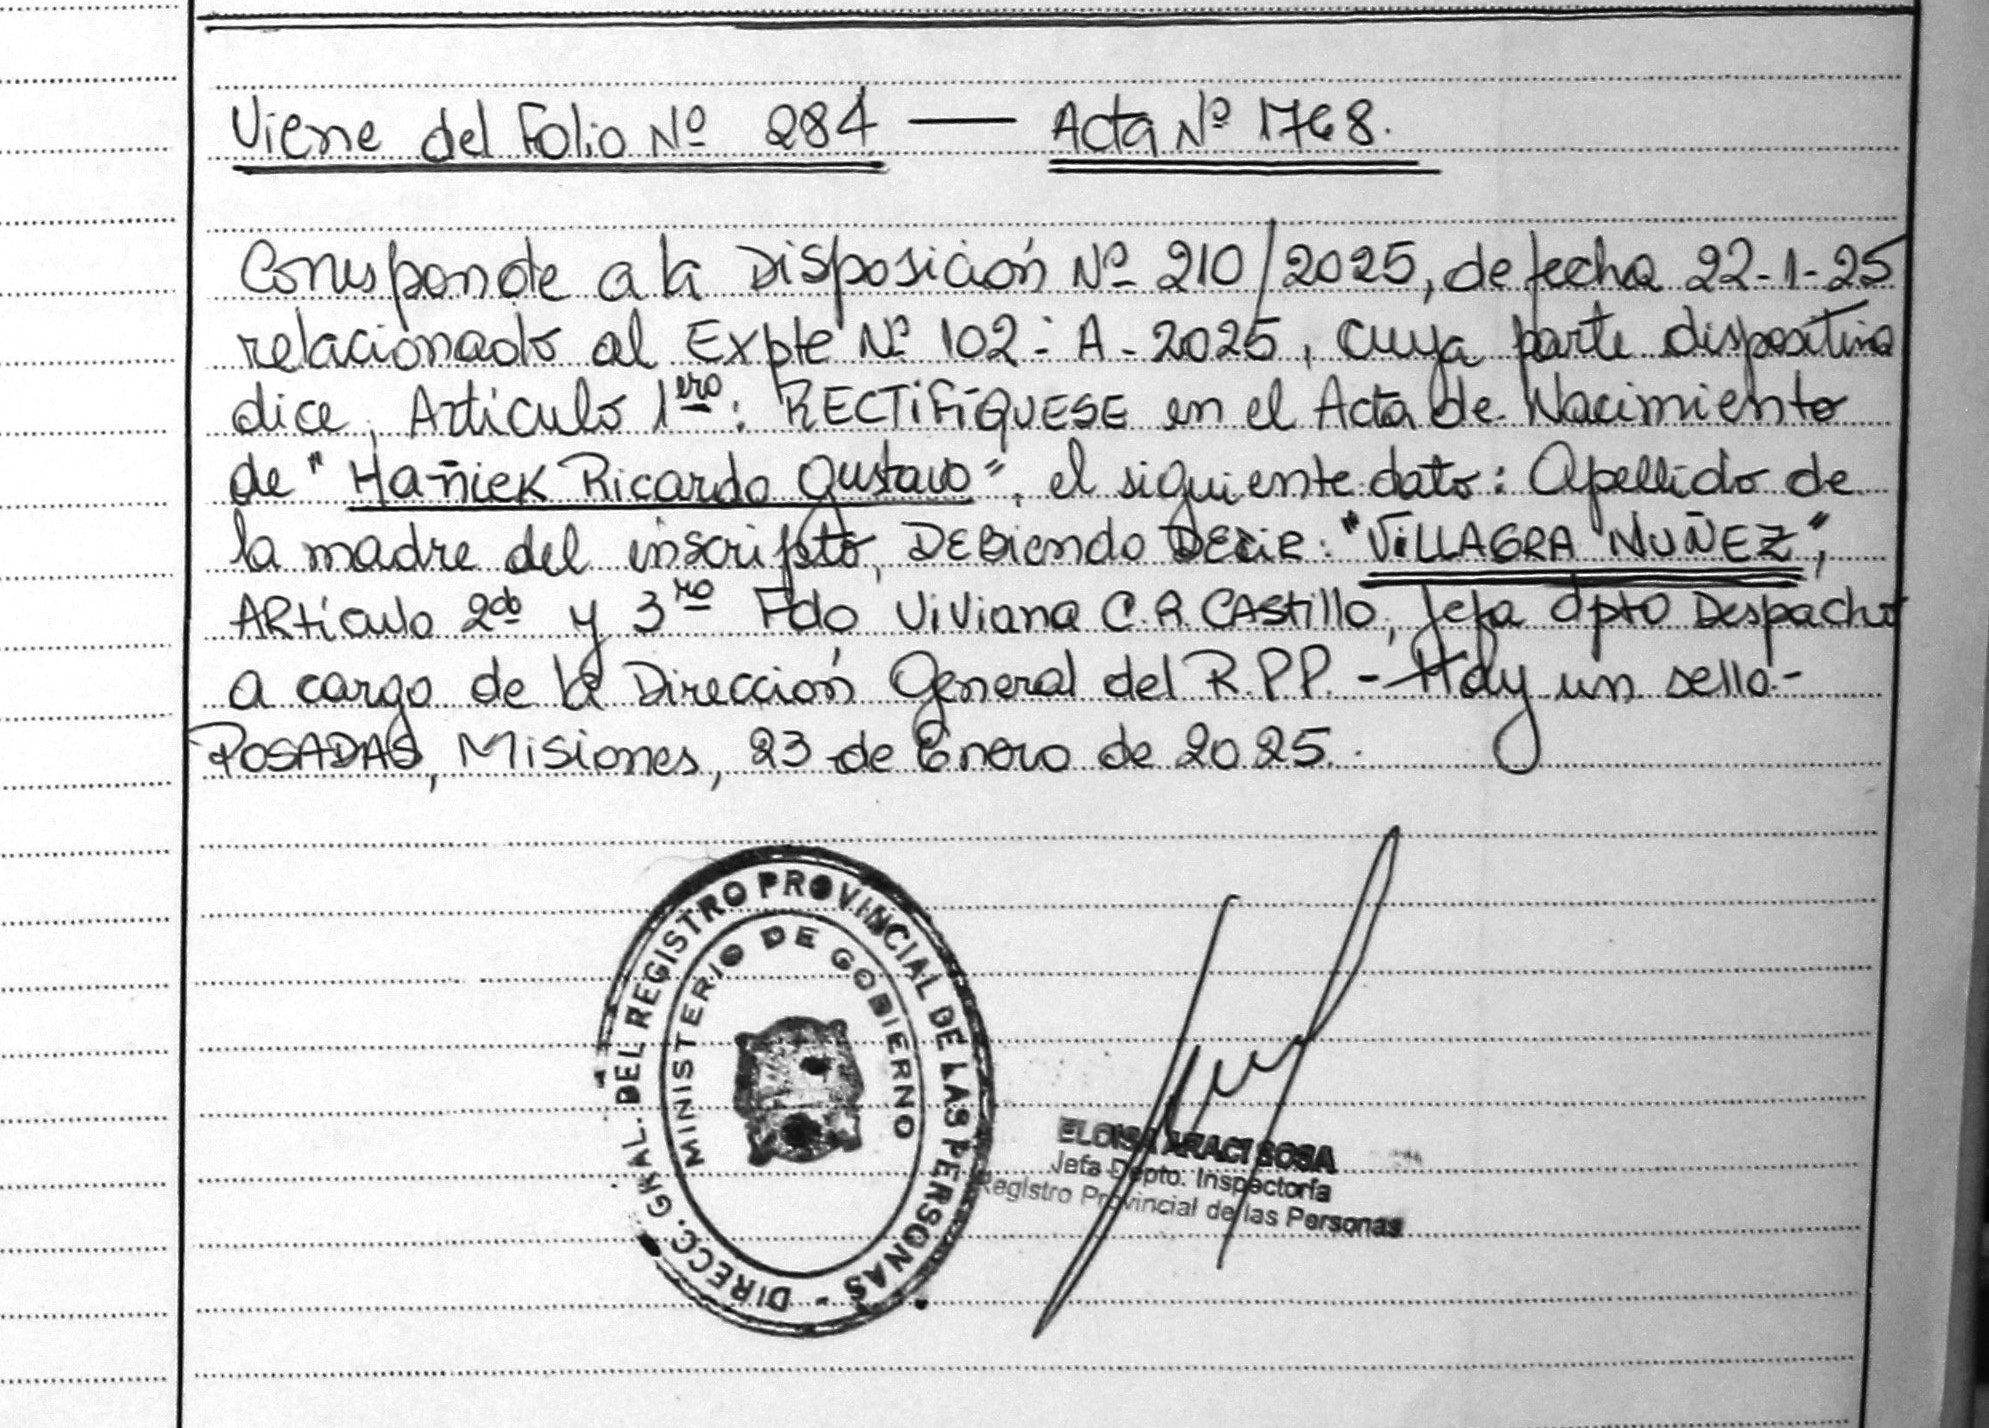 Viene del Folio Nº 284 — Acta Nº 1768.
Corresponde a la Disposición Nº 210/2025, de fecha 22-1-25
relacionado al Expte Nº 102-A-2025, cuya parte dispositiva
dice, Artículo 1ero: RECTIFÍQUESE en el Acta de Nacimiento
de "Hañiek Ricardo Gustavo", el siguiente dato: Apellido de
la madre del inscripto, DEBiendo DEciR: "ViLLAGRA NUÑEZ",
ARtículo 2do y 3ro Fdo Viviana C.R. CAStillo, Jefa dpto Despacho
a cargo de la Dirección General del R.P.P. - Hay un sello.-
POSADAS, Misiones, 23 de Enero de 2025.
DIRECC. GRAL. DEL REGISTRO PROVINCIAL DE LAS PERSONAS -
MINISTERIO DE GOBIERNO
ELOISA ARACI SOSA
Jefa Depto. Inspectoría
Registro Provincial de las Personas